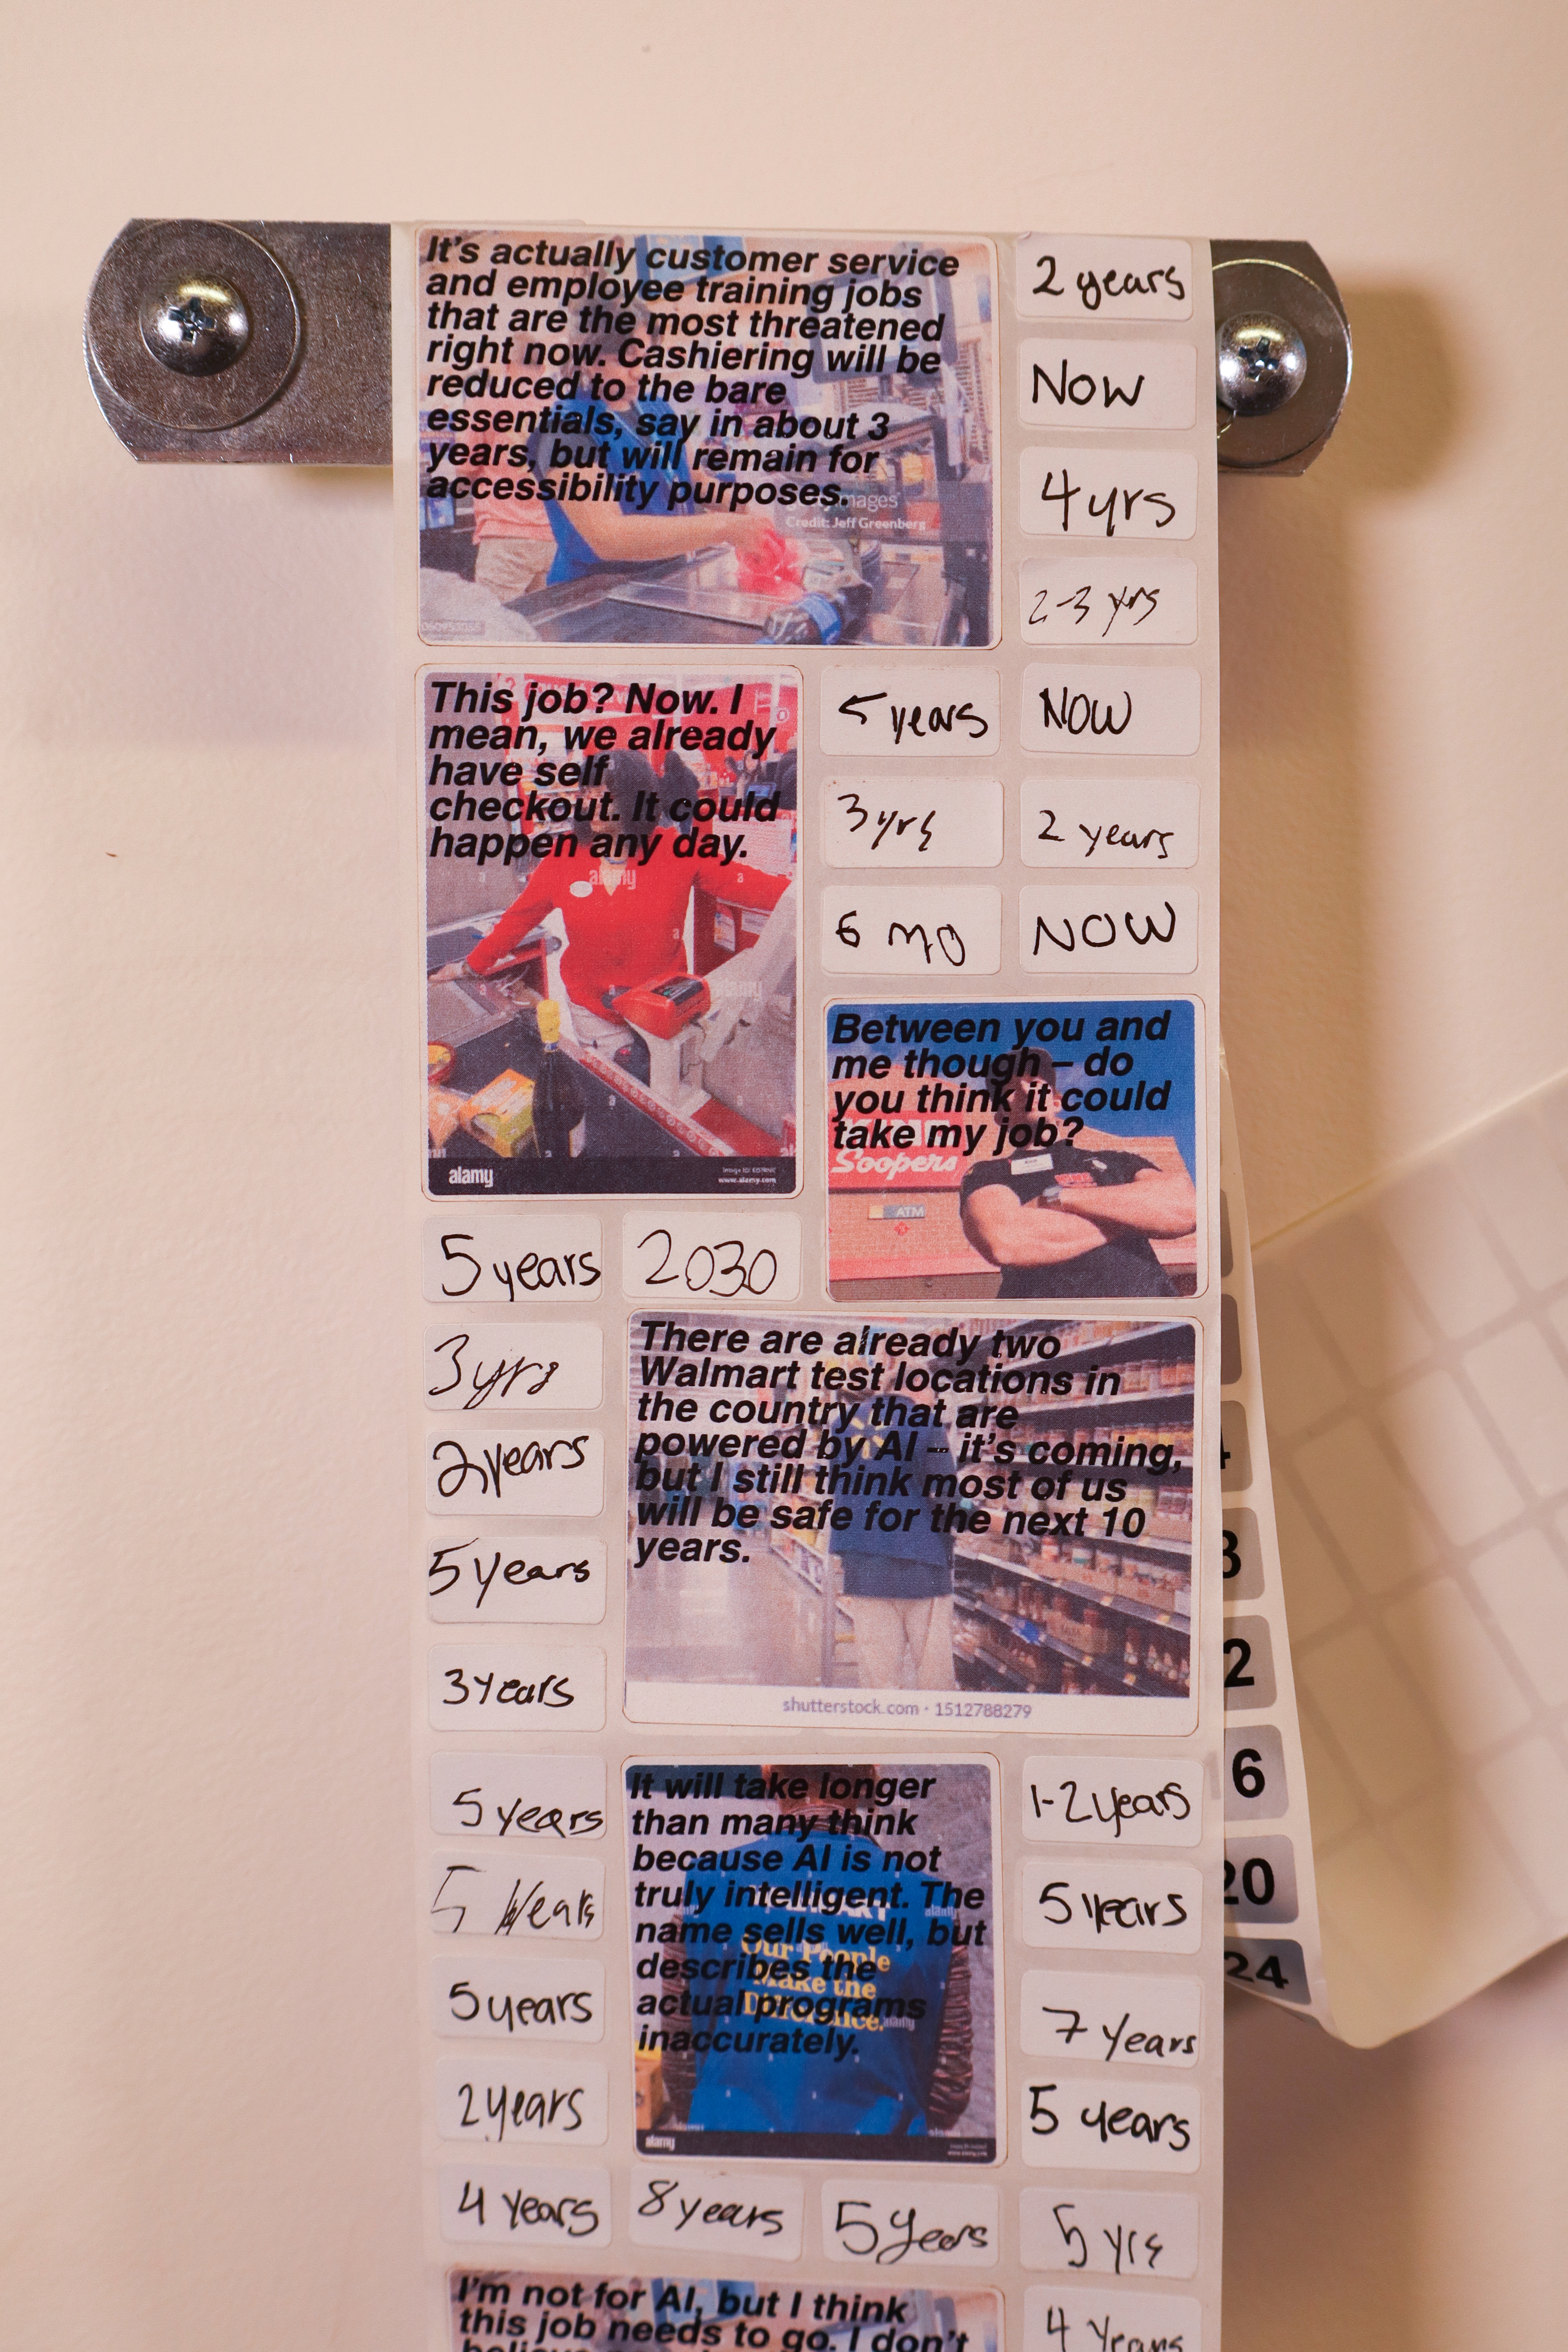 It's actually customer service
and employee training jobs
that are the most threatened
right now. Cashiering will be
reduced to the bare
essentials, say in about 3
years, but will remain for
accessibility purposes.
Credit: Jeff Greenberg
2 years
NOW
4 yrs
2-3 yrs
This job? Now. I
mean, we already
have self
checkout. It could
happen any day.
alamy
alamy
www.alamy.com
5 years
NOW
3 yrs
2 years
6 mo
NOW
Between you and
me though – do
you think it could
take my job?
Soopers
ATM
5 years
2030
3 yrs
2 years
5 years
3 years
There are already two
Walmart test locations in
the country that are
powered by AI – it's coming,
but I still think most of us
will be safe for the next 10
years.
shutterstock.com · 1512788279
5 years
5 years
5 years
2 years
It will take longer
than many think
because AI is not
truly intelligent. The
name sells well, but
describes the
actual programs
inaccurately.
Our People
Make the
Difference.
alamy
1-2 years
5 years
7 years
5 years
4 years
8 years
5 years
5 yrs
I'm not for AI, but I think
this job needs to go. I don't
4 years
2
6
20
24